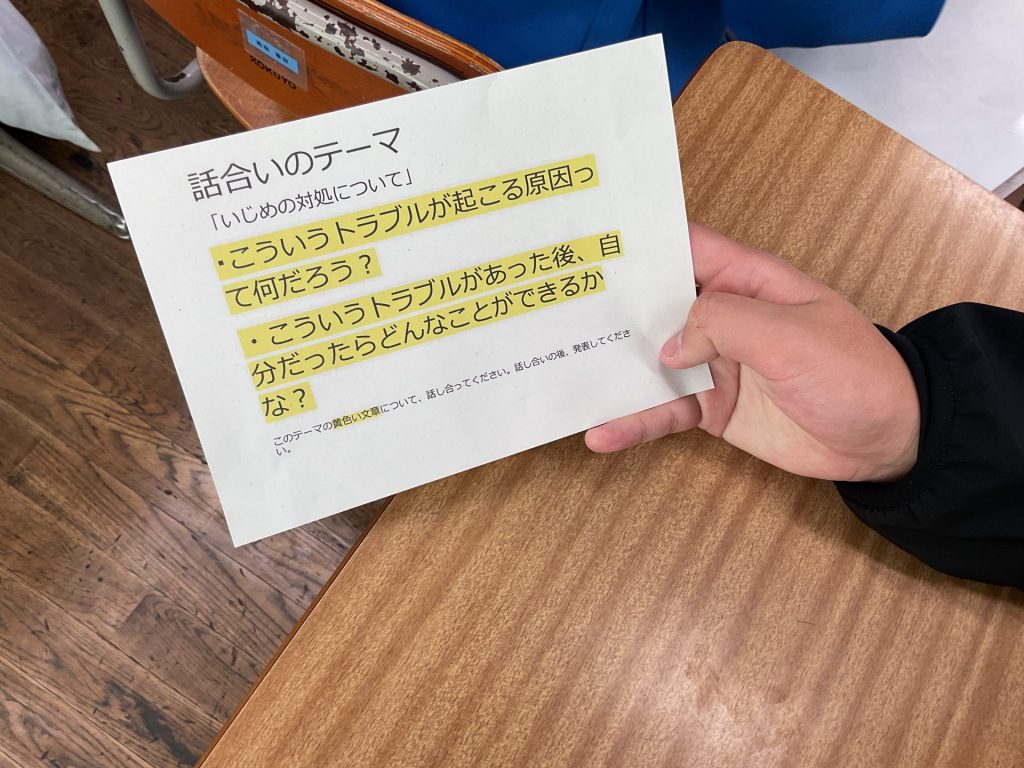 KOKUYO
話合いのテーマ
「いじめの対処について」
・こういうトラブルが起こる原因っ
て何だろう？
・こういうトラブルがあった後、自
分だったらどんなことができるか
な？
このテーマの黄色い文章について、話し合ってください。話し合いの後、発表してくださ
い。